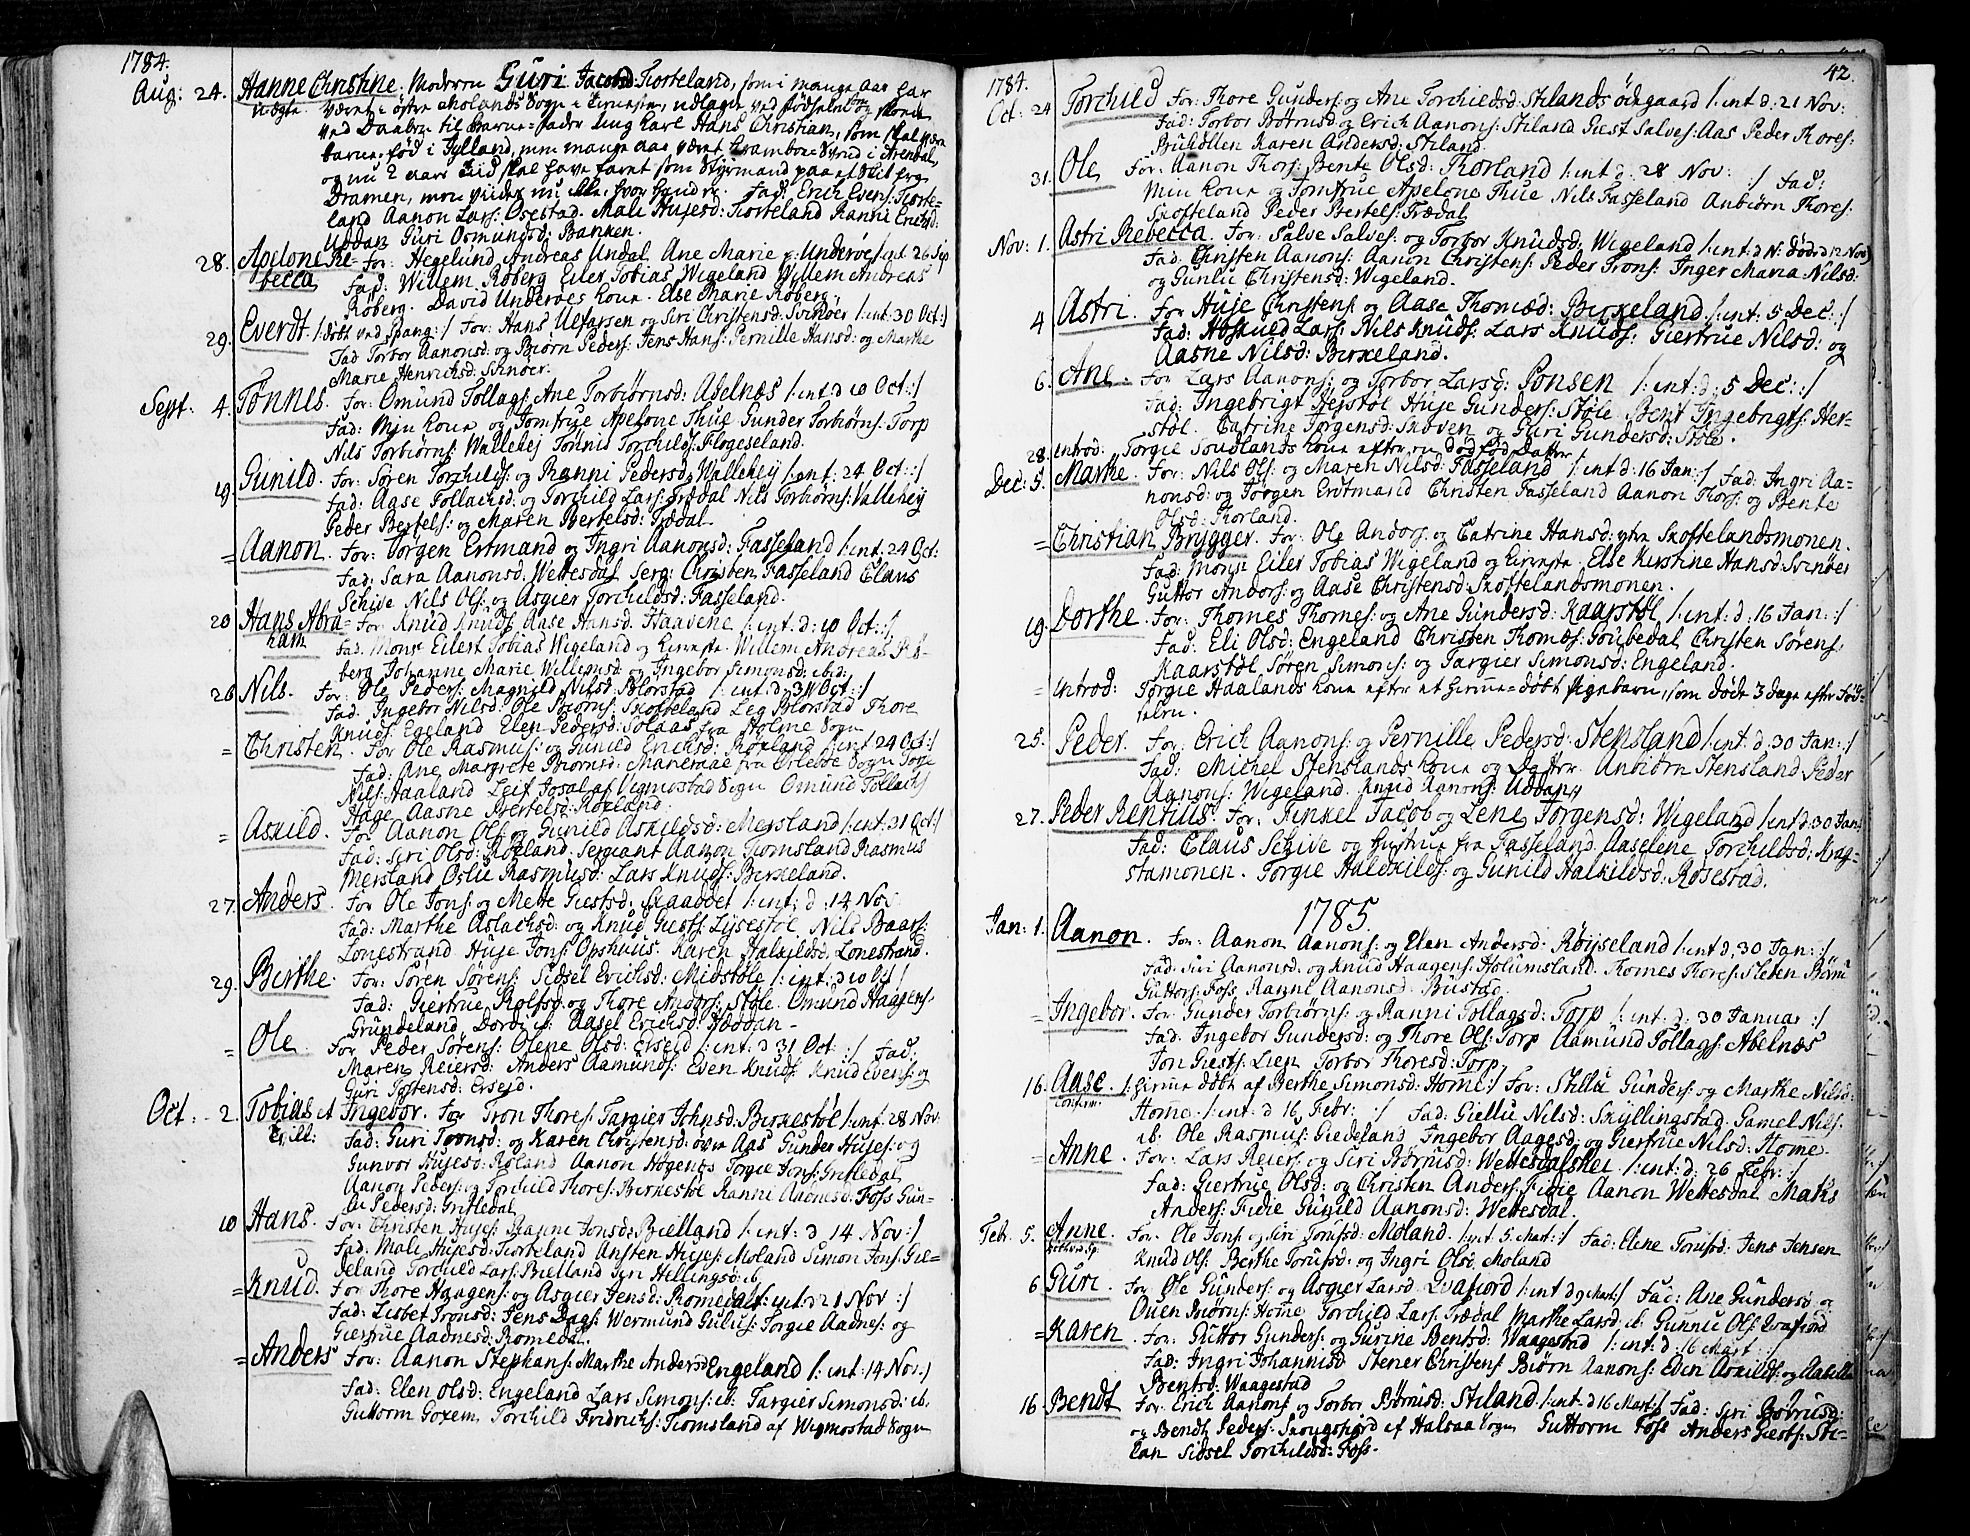 1784.
Aug: 24. Hanne Christine, Moderen Guri Jacobsd: Torteland, som i mange Aar har
uægte været i østre Molands Sogn
ved Daaben til Barne-Fader ung Karl Hans Christian, som skal være
barne-fød i Jylland, men mange aar været i Arendal,
og nu 2 aars Tid skal have faret som Styrmand paa et Skib fra
Dramen, men vides nu ikke, hvor han er. Fad: Erich Evens: Torte-
land Aanon Lars: Osestad. Mali Hujesd: Torteland Ranni Erichsd:
Uddan Guri Osmundsd: Banken.
28. Apelone Re- For: Hegelund Andreas Undal, Ane Marie Underøe /: int 26 Sep
becca Fad: Willem Røberg Eiler Tobias Wigeland Willem Andreas
Røberg. David Underøes Kone. Else Marie Røberg.
29. Everdt /: døbt ved Spang :/ For: Hans Ulfarsen og Siri Christensd: Svinøer /: int: 30 Oct :/
Fad Torbor Aanonsd: og Biørn Peders: Jens Hans: Pernille Hansd: og Marthe
Marie Henrichsd: Svinøer.
Sept: 4. Tønnes. For: Omund Tollags: Ane Torbiørnsd: Abelnæs /: int: d 10 Oct: :/
Fad: Min Kone og Jomfrue Apelone Thue Gunder Torbiørns: Torp
Nils Torbiørns: Wallehej Tønnis Torchilds: Flogeseland.
19. Gunild. For: Søren Torchilds: og Ranni Pedersd: Wallehej /: int: 24 Oct: :/
Fad: Aase Tollachsd: og Torchild Lars: Trædal Nils Torbiørns: Vallehej
Peder Bertels: og Maren Bertelsd: Trædal
= Aanon. For: Jørgen Ertmand og Ingri Aanonsd: Fasseland /: int: 24 Oct:
Fad: Sara Aanonsd: Wettesdal Serg: Christen Fasseland Claus
Schive Nils Ols: og Asgier Torchildsd: Fasseland.
20 Hans Abra- For: Knud Knuds: Aase Hansd: Haavene /: int: d: 10 Oct: :/
ham Fad: Monsr Eilert Tobias Wigeland og Kiereste. Willem Andreas Rø-
berg Johanne Marie Willemsd: og Ingebor Simonsd: ibid:
26 Nils. For: Ole Peders: Magnild Nilsd: Blørstad /: int: d: 31 Oct: :/
Fad: Ingebor Nilsd: Ole Biørns: Skofteland Leg Blørstad Thore
Knuds: Egeland Elen Pedersd: Solaas fra Holme Sogn
= Christen. For Ole Rasmus: og Gunild Erichsd: Røxland /: int 24 Oct: :/
Fad: Ane Margrete Biørnsd: Manemae fra Oslebøe Sogn Torje
Nils: Haaland Leif Josal af Vigmostad Sogn Omund Tollachs
Hage Aasne Bertelsd: Røxland.
= Askild. For Aanon Ols: og Gunild Askildsd: Mersland /: int: 31 Oct: :/
Fad: Siri Olsd: Røxland. Sergiant Aanon Tiomsland Rasmus
Mersland Oslu Rasmusd: Lars Knuds: Birkeland.
27. Anders. For Ole Jons: og Mette Giestsd: Skaadet /: int: d: 14 Nov
Fad: Marthe Aslachsd: og Knud Giests: Lysestøl. Nils Baars:
Lonestrand Huje Jons: Opshuus. Karen Halkildsd: Lonestrand.
29. Berthe. For: Søren Sørens: Sidsel Erichsd: Midstøle /: int: d 10 Oct :/
Fad: Giertrue Rolfsd: og Thore Andors: Støle. Omund Haagens:
Grundeland, Aasel Erichsd:
= Ole For Peder Sørens: Olene Olsd: Erseid /: int: d 31 Oct :/ Fad:
Maren Reiersd: Anders Aamunds: Even Knuds: Knud Evens: og
Guri Tostensd: Erseid.
Oct: - 2. Tobias et Ingebor. For Tron Thores: Targier Jehnsd: Birkestøl /: int: 28 Nov:
Fad: Guri Tronsd: og Karen Christensd: øvre Aas Gunder Hujes: og
Gunvor Hujesd: Røland Aanon Høgents Torgie Jons: Gritledal
Aanon Peders: og Torchild Thores: Birkestøl Ranni Aadnesd: Foss Gun-
Pedersd: Gritledal.
10 Hans. For: Christen Hujes: Ranne Jonsd: Bielland /: int: d 14 Nov :/
Fad: Mali Hujesd: Torteland Ansten Hujes: Moland Simon Jons:
deland Torchild Lars: Bielland Siri Hellingsd: ib
= Knud. For Thore Haagens: og Asgier Jensd: Romedal /: int: d 21 Nov :/
Fad: Lisbet Tronsd: Jens Dags: Wermund Gulus: Torgie Aadnes: og
Giertrue Aadnesd: Romedal.
= Anders For: Aanon Stephans: Marthe Andersd Engeland /: int: 14 Nov: :/
Fad: Elen Olsd: Engeland Lars Simons: ib: Targier Simonsd: ib.
Guttorm Goxem Torchild Fridrichs: Tiomsland af Wigmostad Sogn
42.
1784.
Oct: 24 Torchild For: Thore Gunders: og Ane Torchildsd: Stilands ødegaard /: int d: 21 Nov:
Fad: Torbor Børrusd: og Erich Aanons: Stiland Giest Salves: Aas Peder Thores:
Buhollen Karen Andersd: Stiland.
31. Ole For: Aanon Thors: Bente Olsd: Thorland /: int d: 28 Nov: :/ Fad:
Min Kone og Jomfrue Apelone Thue Nils Fasseland Anbiørn Thores:
Skofteland Peder Bertels: Trædal
Nov: 1. Astri Rebecca. For: Salve Salves: og Torbor Knudsd: Wigeland /: int: d N: døde d 12 Nov)
Fad: Christen Aanons: Aanon Christens: Peder Trons: Inger Maria Nilsd:
og Gunlu Christensd: Wigeland.
4 Astri. For Huje Christens: og Aase Thomæd: Birkeland /: int: 5 Dec: :/
Fad: Hoskuld Lars: Nils Knuds: Lars Knuds: Giertrue Nilsd: og
Aasne Nilsd: Birkeland.
6. Ane. For Lars Aanons: og Torbor Larsd: Ponsen /: int: d: 5 Dec: :/
Fad: Ingebrigt Herstøl Huje Gunders: Støle Bent Ingebrigts: Her-
støl. Catrine Jørgensd: Skoven og Guri Gundersd: Støle.
28. Introd: Torgie Soudlands Kone efter en dødfød Datter
Dec: 5. Marthe. For: Nils Ols: og Maren Nilsd: Fasseland /: int d: 16 Jan: :/ Fad: Ingri Aa-
nonsd: og Jørgen Ertmand Christen Fasseland Aanon Thors: og Bente
Olsd: Thorland.
= Christian Brygger. For: Ole Andors: og Catrine Hansd: ytre Skoftelandsmonen.
Fad: Monsr Eiler Tobias Wigeland og Kiereste. Else Kirstine Hansd: Svinøer
Guttor Andors: og Aase Christensd: Skoftelandsmonen.
19. Dorthe. For: Thomes Thomes: og Ane Gundersd: Kaarstøl /: int: d: 16 Jan: :/
Fad: Eli Olsd: Engeland Christen Thomes: Goubedal Christen Sørens:
Kaarstøl Søren Simons: og Targier Simonsd: Engeland.
= Introd: Torgie Haalands Kone efter et hjemme-døbt Pigebarn, som døde 3 dage efter Fød-
selen.
25. Peder. For: Erich Aanons: og Pernille Pedersd: Stensland /: int: d, 30 Jan: :/
Fad: Michel Stenslands Kone og Datter. Anbiørn Stensland Peder
Aanons: Wigeland. Knud Aanons: Uddan.
27. Peder Rentius. For: Finkel Jacob og Lene Jørgensd: Wigeland /: int d: 30 Jan:
Fad: Claus Schive og Hustrue fra Fasseland Aaselene Torchildsd: Krag-
stamonen. Torgie Halckilds: og Gunild Halkildsd: Rosestad.
1785.
Jan: 1. Aanon. For: Aanon Aanons: og Elen Andersd: Røijseland /: int: d, 30 Jan: :/
Fad: Siri Aanonsd: og Knud Haagens: Holumsland. Thomes Thores: Sleten Børni
Guttors: Foss Ranni Aanonsd: Bustad.
= Ingebor. For: Gunder Torbiørns: og Ranni Tollagsd: Torp /: int: d: 30 Januar :/
Fad: Ingebor Gundersd: og Thore Ols: Torp Aamund Tollags: Abelnæs
Jon Giests: Lien Torbor Thoresd: Torp
16. Aase. /: hjemme døbt af Berthe Simonsd: Home :/ For: Stillu Gunders: og Marthe Nilsd:
Confirm. Home. /: int: d 16 Febr: :/ Fad: Giellu Nilsd: Skyllingstad Gamel Nils
ib: Ole Rasmus: Giedeland Ingebor Aagesd: og Giertrue Nilsd: Home
= Anne. For: Lars Reiers: og Siri Børrusd: Wettesdalshei /: int: d: 26 Febr: :/
Fad: Giertrue Olsd: og Christen Anders: Fidie Aanon Wettesdal Mats
Anders: Fidie Gunild Aanonsd: Wettesdal.
Feb: 5. Anne. For: Ole Jons: og Siri Torusd: Moland. /: int: 5. Mart: :/ Fad: Elene Torusd: Jens Jensen
Knud Ols: Berthe Torusd: og Ingri Olsd: Moland
6 Guri. For Ole Gunders: og Asgier Larsd: Qvafiord /: int d 9 Mart: :/ Fad: Ane Gundersd: og
Ouen Biørns: Home Torchild Lars: Trædal Marthe Larsd: ib: Gunnil Ols: Qvafiord
= Karen For: Guttor Gunders: og Gurine Bentsd: Waagestad /: int: d: 16 Mart: :/
Fad: Ingri Johannisd: Stener Christens: Biørn Aanons: Even Askilds: og Aabellu
Bentsd: Waagestad
16. Bendt For: Erich Aanons: og Torbor Børrusd: Stiland /: int: d 16 Mart: :/ Fad: Siri Børrusd:
og Bendt Peders: Skougsfiord af Halsaa Sogn Guttorm Foss Anders Giests: Sti-
lan Sidsel Torchildsd: Foss.